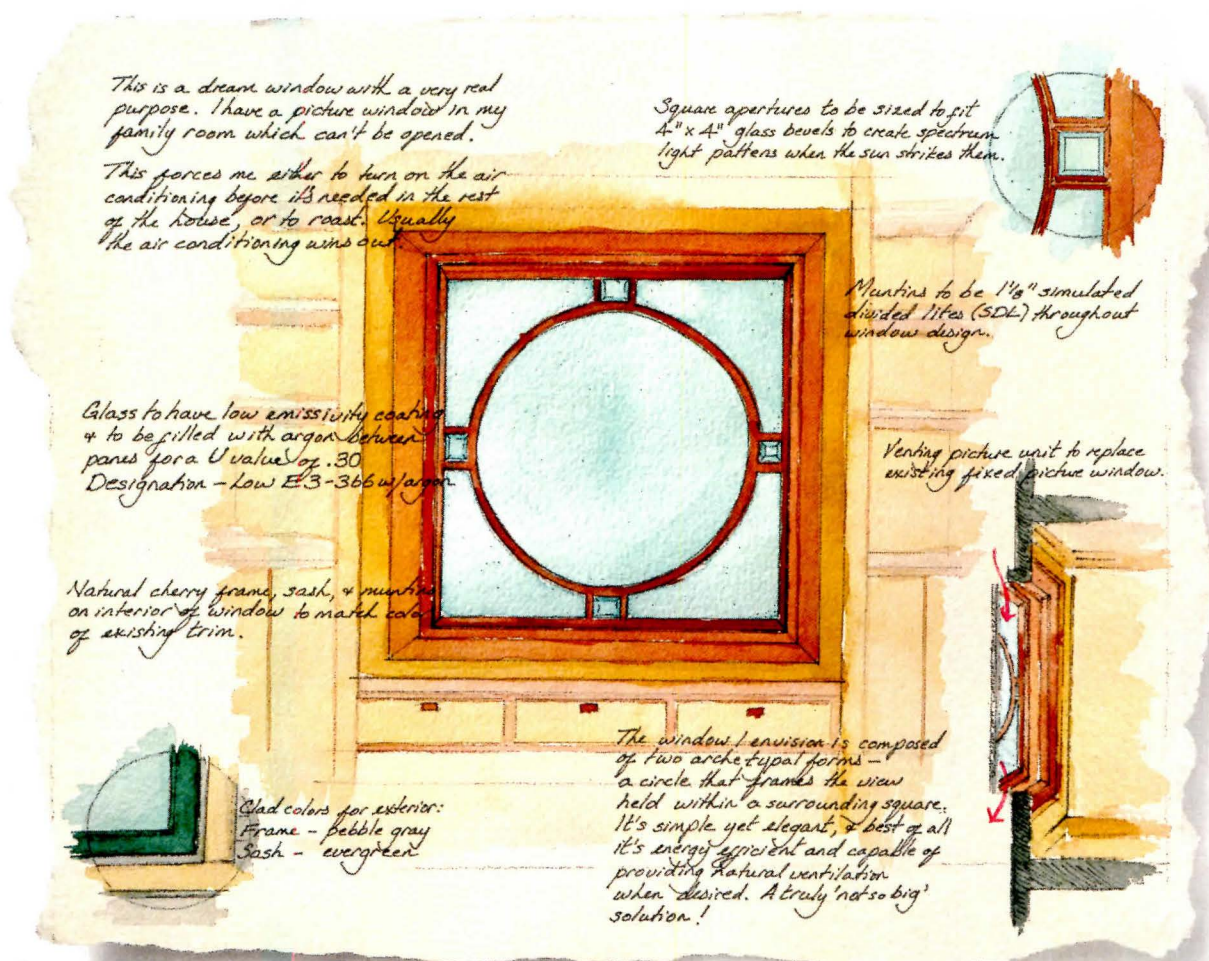 This is a dream window with a very real
purpose. I have a picture window in my
family room which can't be opened.
This forces me either to turn on the air
conditioning before it's needed in the rest
of the house, or to roast. Usually
the air conditioning wins out.
Square apertures to be sized to fit
4" x 4" glass bevels to create spectrum
light pattens when the sun strikes them.
Muntins to be 1 1/8" simulated
divided lites (SDL) throughout
window design.
Glass to have low emissivity coating
& to be filled with argon between
panes for a U value of .30
Designation - Low E3-366 w/argon
Venting picture unit to replace
existing fixed picture window.
Natural cherry frame, sash, & muntins
on interior of window to match color
of existing trim.
Clad colors for exterior:
Frame - pebble gray
Sash - evergreen
The window I envision is composed
of two archetypal forms -
a circle that frames the view
held within a surrounding square.
It's simple yet elegant, & best of all
it's energy efficient and capable of
providing natural ventilation
when desired. A truly 'not so big'
solution!